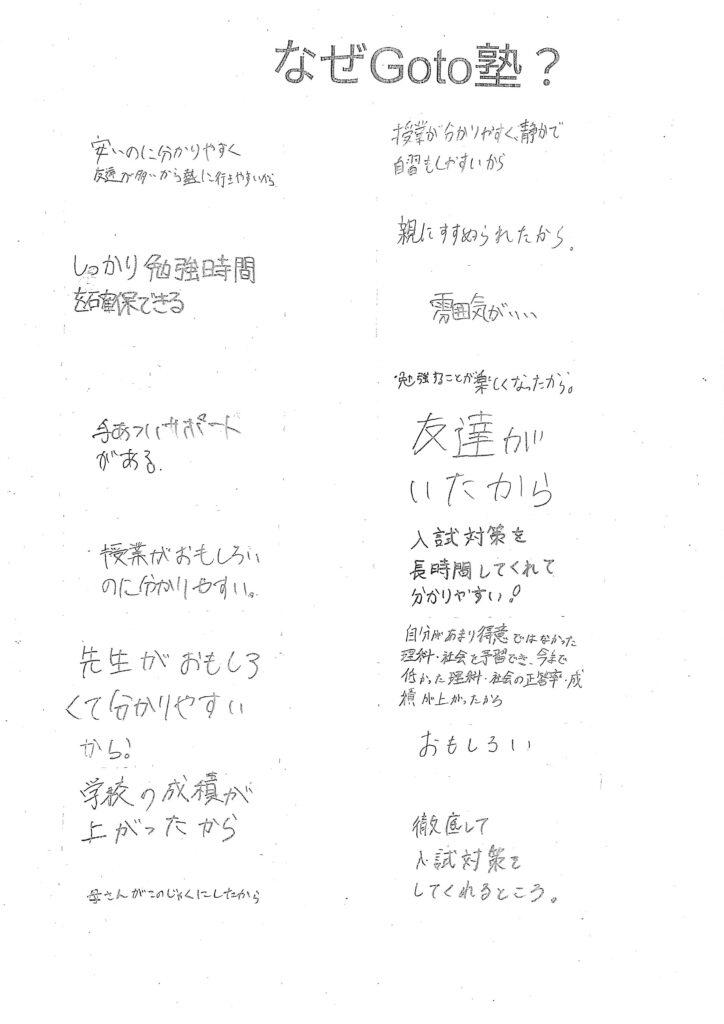 なぜGoto塾？
安いのに分かりやすく
友達が多いから塾に行きやすいから
しっかり勉強時間
を確保できる
手あついサポート
がある.
授業がおもしろい
のに分かりやすい。
先生がおもしろ
くて分かりやすい
から!
学校の成績が
上がったから
母さんがこのじゅくにしたから
授業が分かりやすく、静かで
自習もしやすいから
親にすすめられたから。
雰囲気がいい
勉強することが楽しくなったから。
友達が
いたから
入試対策を
長時間してくれて
分かりやすい!
自分があまり得意ではなかった
理科・社会を予習でき、今まで
低かった理科・社会の正答率・成
績が上がったから
おもしろい
徹底して
入試対策を
してくれるところ。